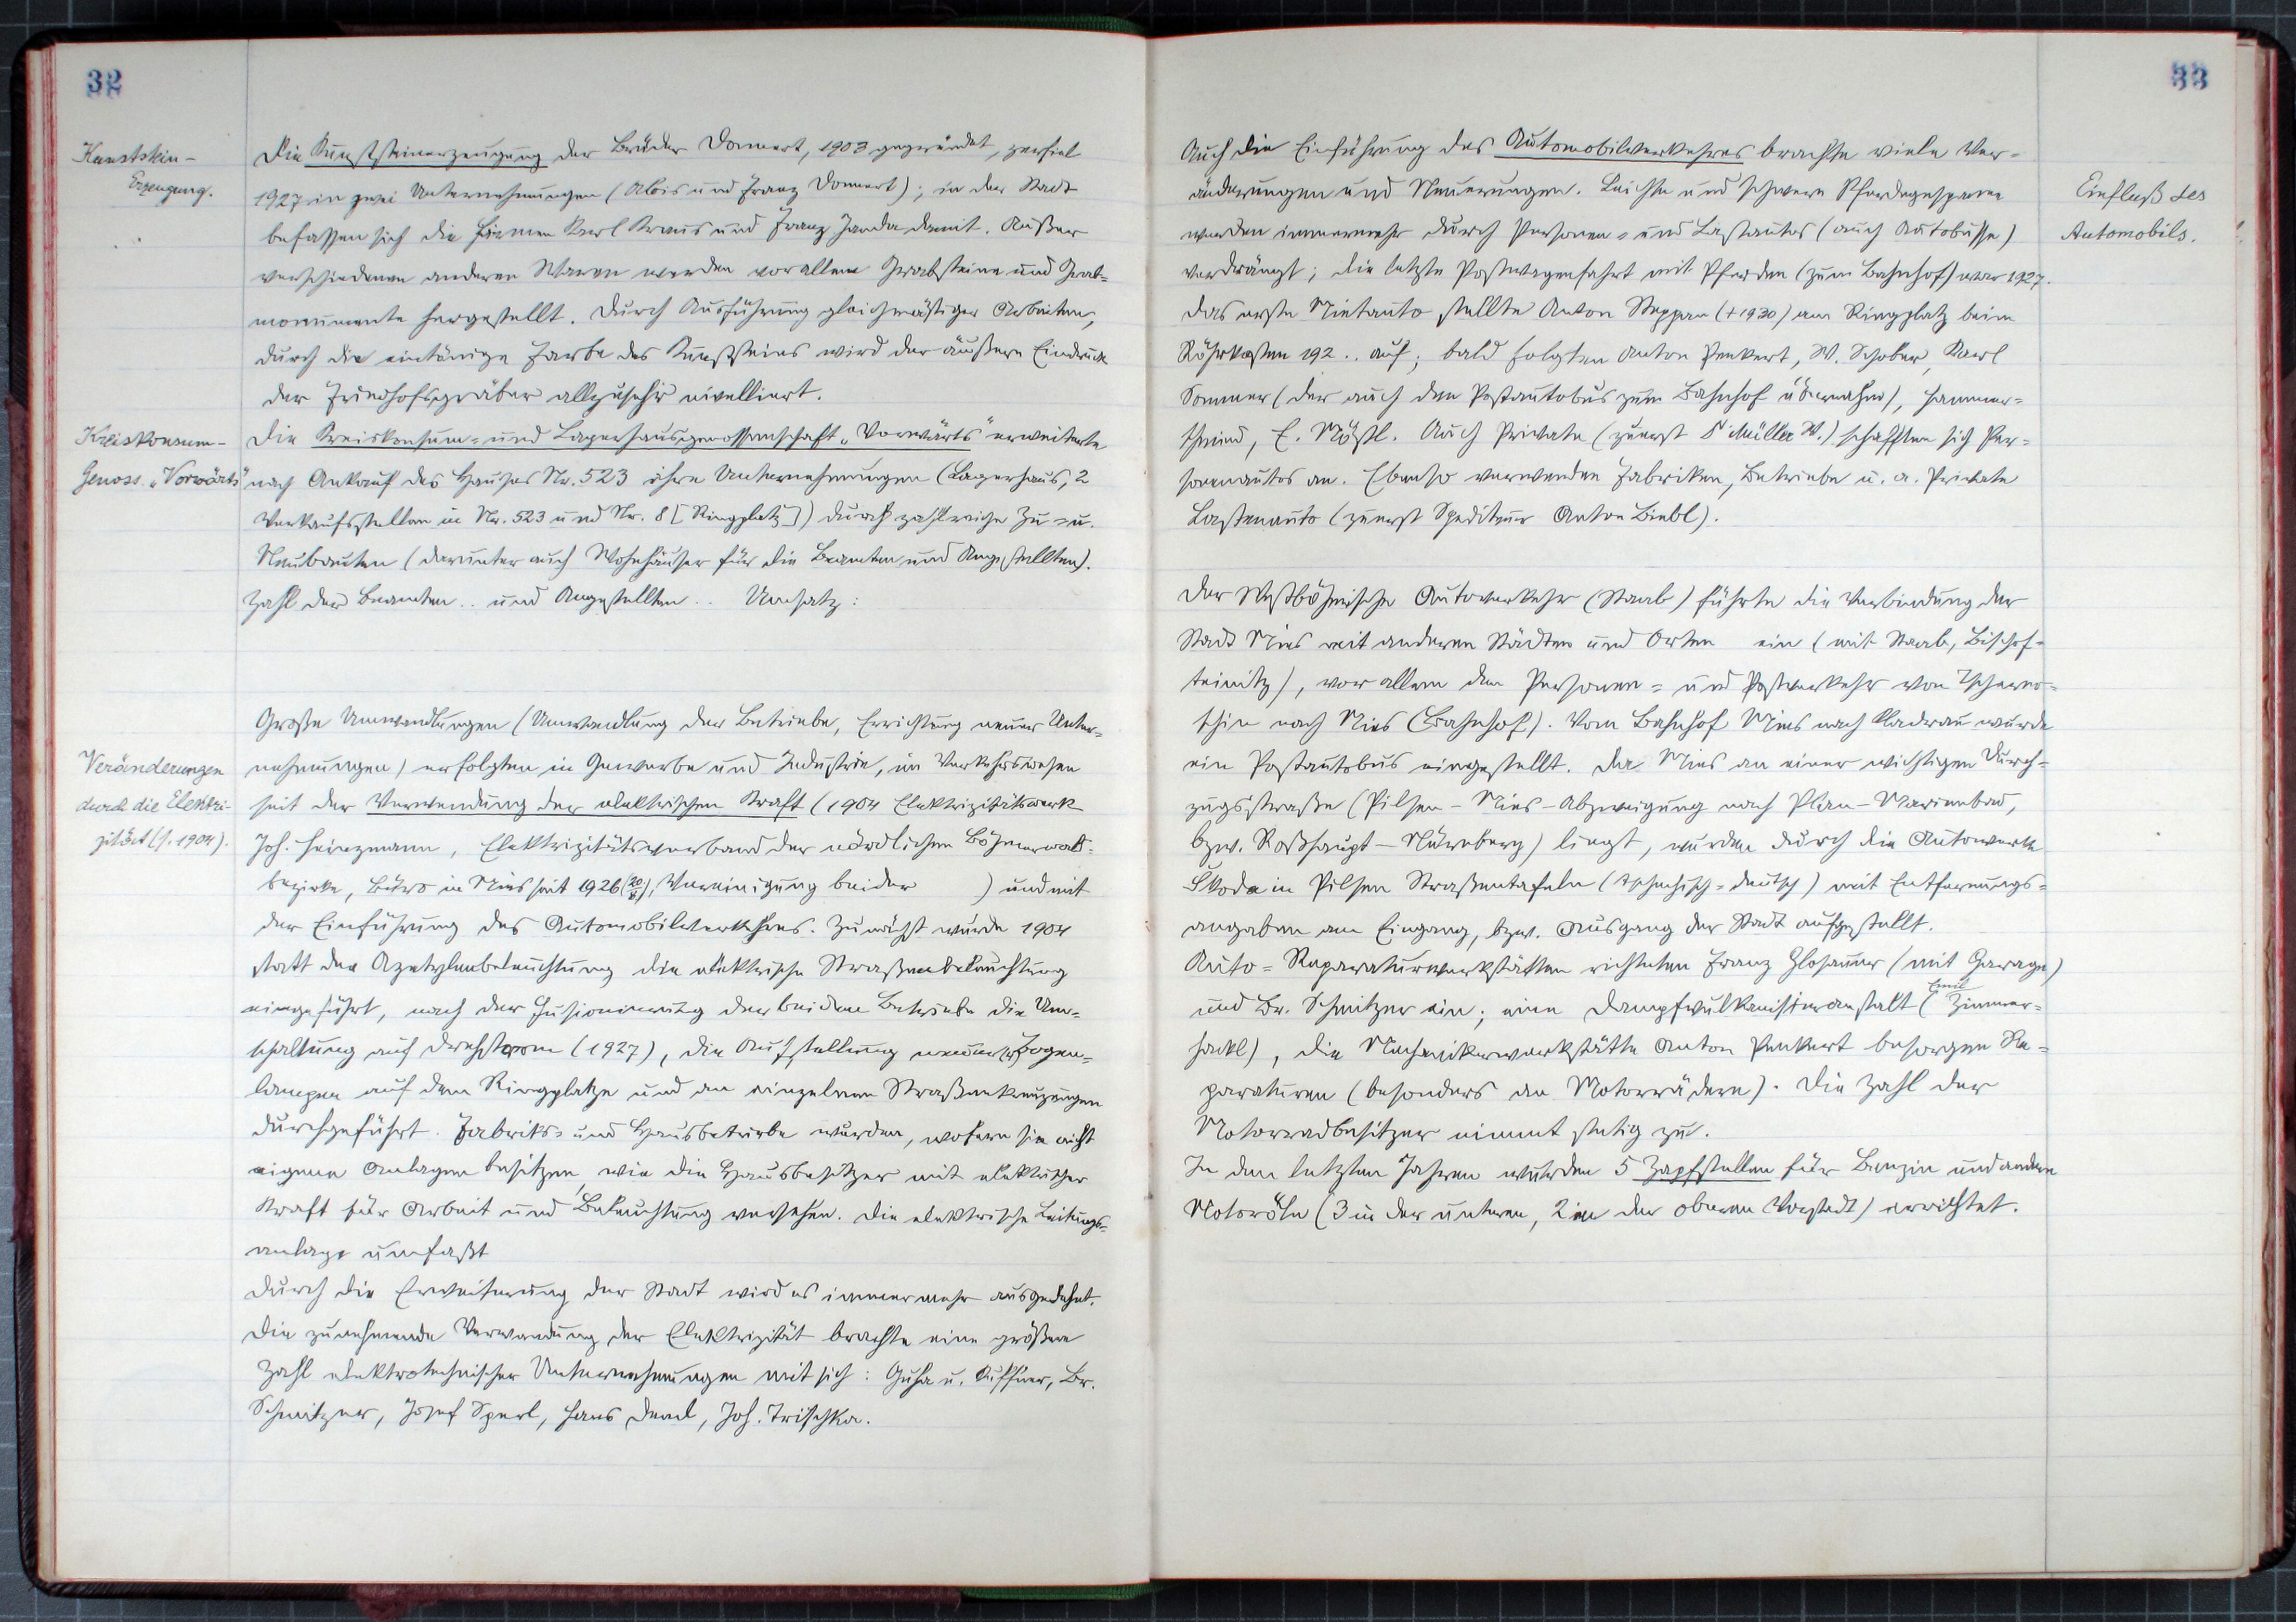 32
Kunststein-
Erzeugung.
Die Kunststeinerzeugung der Brüder Donnert, 1903 gegründet, zerfiel
1927 in zwei Unternehmungen (Alois und Franz Donnert); in der Stadt
befassen sich die Firmen Karl Kraus und Franz Janda damit. Außer
verschiedenen anderen Waren werden vor allem Grabsteine und Grab=
monumente hergestellt. Durch Ausführung gleichmäßiger Arbeiten,
durch die eintönige Farbe des Kunststeins wird der äußere Eindruck
der Friedhofsgräber allzusehr nivelliert.
Kreiskonsum-
Genoss. „Vorwärts"
Die Kreiskonsum= und Lagerhausgenossenschaft „Vorwärts" erweiterte
nach Ankauf des Hauses Nr. 523 ihre Unternehmungen (Lagerhaus, 2
Verkaufsstellen in Nr. 523 und Nr. 8 [Ringplatz]) durch zahlreiche Zu= u.
Neubauten (darunter auch Wohnhäuser für die Beamten und Angestellten).
Zahl der Beamten .. und Angestellten .. Umsatz:
Große Umwandlungen (Umwandlung der Betriebe, Errichtung neuer Unter=
Veränderungen
durch die Elektri-
zität (s. 1904).
nehmungen) erfolgten in Gewerbe und Industrie, im Verkehrswesen
seit der Verwendung der elektrischen Kraft (1904 Elektrizitätswerk
Joh. Heinzmann, Elektrizitätsverband der nördlichen Böhmerwald=
bezirke, Büro in Mies seit 1926 Vereinigung beider ) und mit
der Einführung des Automobilverkehres. Zunächst wurde 1904
statt der Azetylenbeleuchtung die elektrische Straßenbeleuchtung
eingeführt, nach der Fusionierung der beiden Betriebe die Um=
schaltung auf Drehstrom (1927), die Aufstellung neuer Bogen=
lampen auf dem Ringplatze und an einzelnen Straßenkreuzungen
durchgeführt. Fabriks= und Hausbetriebe wurden, wofern sie nicht
eigene Anlagen besitzen, wie die Hausbesitzer mit elektrischer
Kraft für Arbeit und Beleuchtung versehen. Die elektrische Leitungs=
anlage umfaßt
Durch die Erweiterung der Stadt wird es immer mehr ausgedehnt.
Die zunehmende Verwendung der Elektrizität brachte eine größere
Zahl elektrotechnischer Unternehmungen mit sich: Guha u. Kuffner, Br.
Schmitzer, Josef Sperl, Hans Deml, Joh. Trischka.
33
Einfluß des
Automobils.
Auch die Einführung des Automobilverkehres brachte viele Ver=
änderungen und Neuerungen. Leichte und schwere Pferdegespanne
wurden immermehr durch Personen= und Lastautos (auch Autobusse)
verdrängt; die letzte Postwagenfahrt mit Pferden (zum Bahnhof) war 1927.
Das erste Mietauto stellte Anton Steppan (+1930) am Ringplatz beim
Röhrkasten 192.. auf; bald folgten Anton Penkert, W. Schober, Karl
Sommer (der auch den Postautobus zum Bahnhof übernahm), Hammer=
schmied, E. Mößl. Auch Private (zuerst Müller W.) schafften sich Per=
sonenautos an. Ebenso verwenden Fabriken, Betriebe u. a. Private
Lastenauto (zuerst Spediteur Anton Liebl).
Der Westböhmische Autoverkehr (Staab) führte die Verbindung der
Stadt Mies mit anderen Städten und Orten ein (mit Staab, Bischof=
teinitz), vor allem den Personen= und Postverkehr von Tscherno=
schin nach Mies (Bahnhof). Vom Bahnhof Mies nach Kladrau wurde
ein Postautobus eingestellt. Da Mies an einer wichtigen Durch=
zugsstraße (Pilsen – Mies – Abzweigung nach Plan – Marienbad,
bzw. Roßhaupt – Nürnberg) liegt, wurden durch die Autowerke
Skoda in Pilsen Straßentafeln (tschechisch=deutsch) mit Entfernungs=
angaben am Eingang, bzw. Ausgang der Stadt aufgestellt.
Auto=Reparaturwerkstätten richteten Franz Glosauer (mit Garage)
und Br. Schmitzer ein; eine Dampfvulkanisieranstalt (Emil Zimmer=
hackl), die Mechanikerwerkstätte Anton Penkert besorgen Re=
paraturen (besonders an Motorrädern). Die Zahl der
Motorradbesitzer nimmt stetig zu.
In den letzten Jahren wurden 5 Zapfstellen für Benzin und andere
Motoröle (3 in der unteren, 2 in der oberen Vorstadt) errichtet.